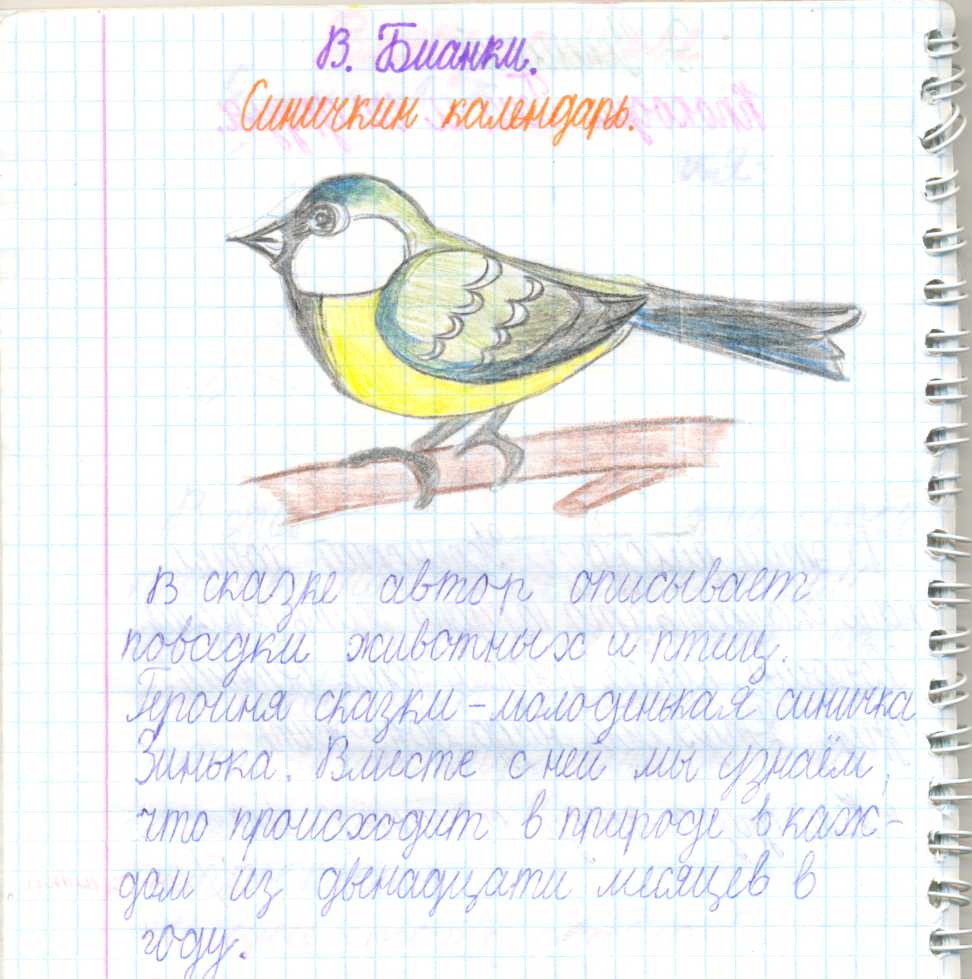 В. Бианки.
Синичкин календарь.
В сказке автор описывает
повадки животных и птиц.
Героиня сказки – молоденькая синичка
Зинька. Вместе с ней мы узнаём,
что происходит в природе в каж-
дом из двенадцати месяцев в
году.